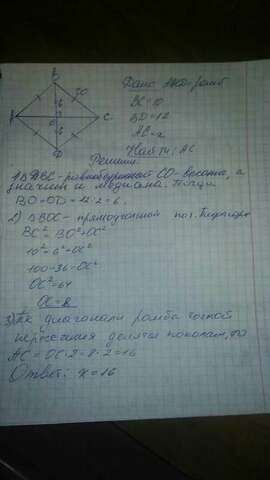 B
10
6
A
O
C
6
D
Дано: ABCD-ромб
BC=10
BD=12
AC=x
Найти: AC
Решение
равнобедренный CO-высота, а
значит и медиана.
BO=OD=12:2=6.
2) △BOC- прямоугольный по т. Пифагора
BC²=BO²+OC²
10²=6²+OC²
100=36+OC²
OC²=64
OC=8
3) Тк диагонали ромба точкой
пересечения делятся пополам, то
AC=OC·2=8·2=16
Ответ: x=16